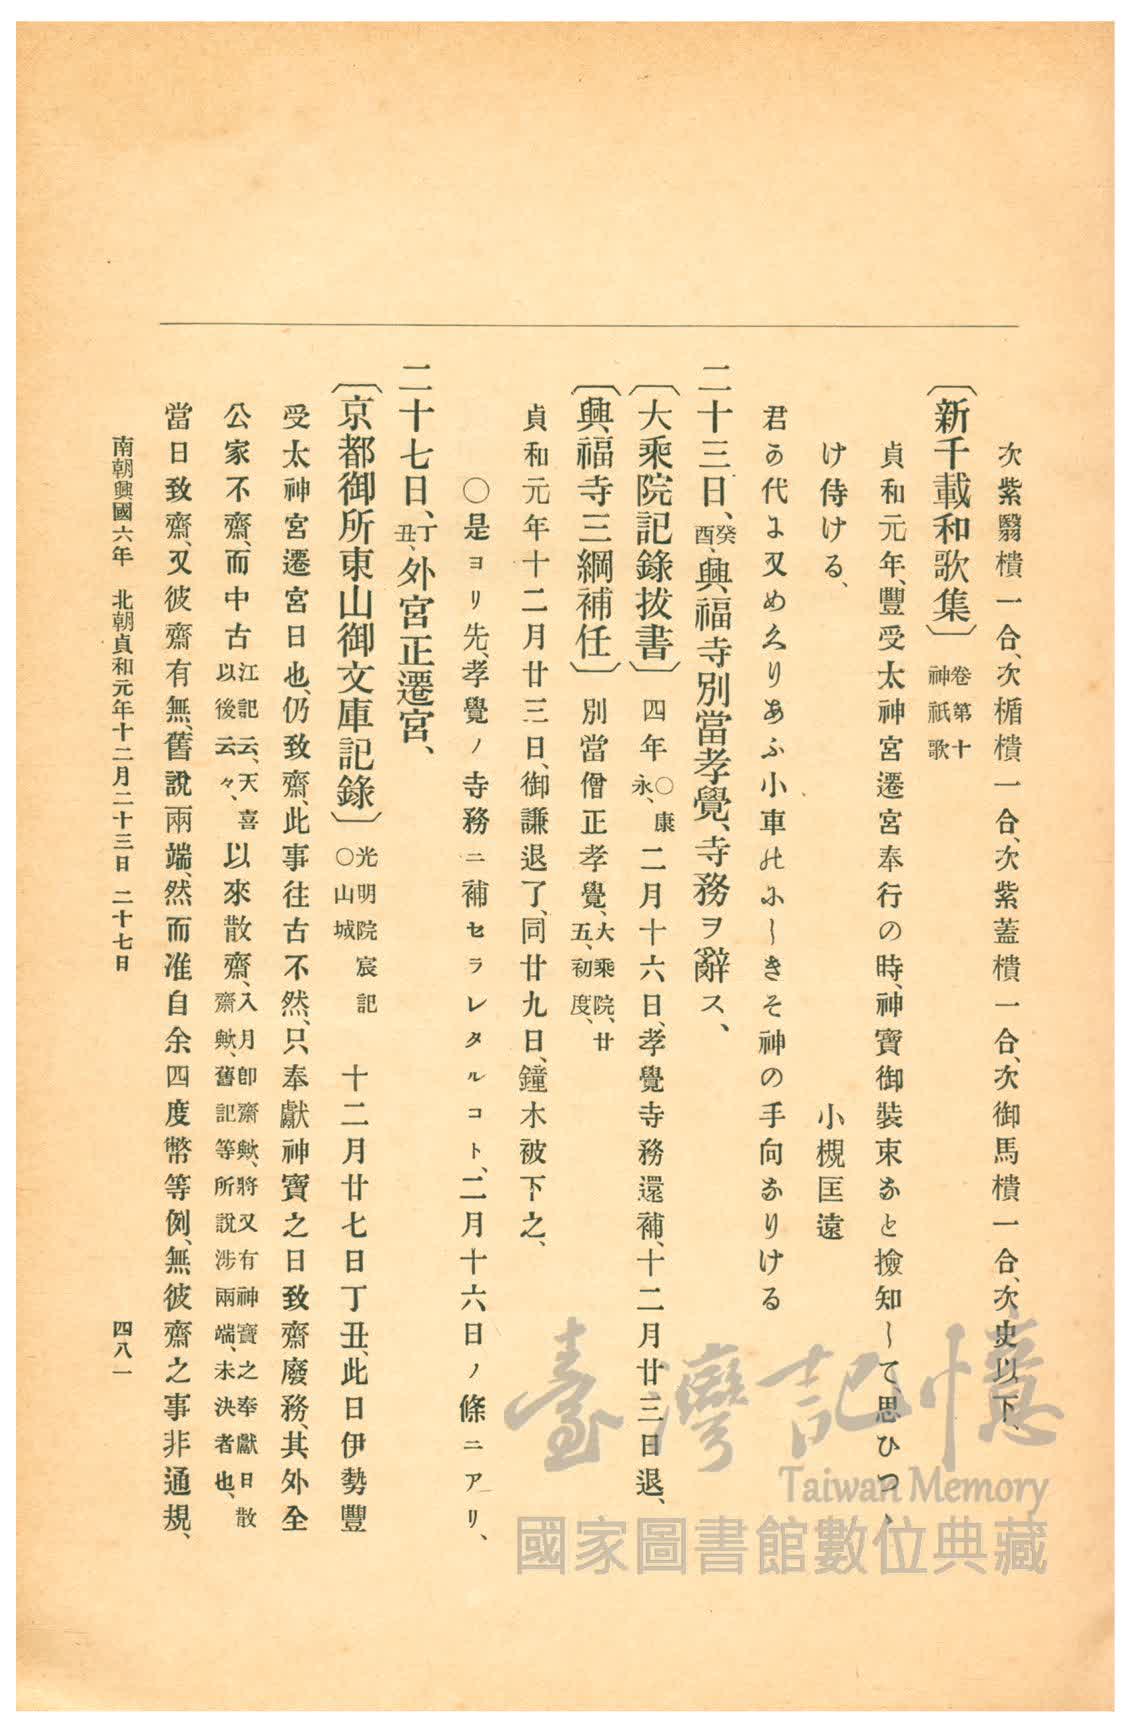 次紫翳樻一合、次楯樻一合、次紫蓋樻一合、次御馬樻一合、次史以下、
〔新千載和歌集〕卷第十神祇歌
貞和元年、豐受太神宮遷宮奉行の時、神寶御裝束なと撿知して、思ひつゝ
け侍ける、
小槻匡遠
君の代に又めくりあふ小車のにしきそ神の手向なりける
二十三日、癸酉、興福寺別當孝覺、寺務ヲ辭ス、
〔大乘院記錄拔書〕四年○康永、二月十六日、孝覺寺務還補、十二月廿三日退、
〔興福寺三綱補任〕別當僧正孝覺、大乘院、廿五、初度、
貞和元年十二月廿三日、御謙退了、同廿九日、鐘木被下之、
○是ヨリ先、孝覺ノ寺務ニ補セラレタルコト、二月十六日ノ條ニアリ、
二十七日、丁丑、外宮正遷宮、
〔京都御所東山御文庫記錄〕光明院宸記○山城 十二月廿七日丁丑、此日伊勢豐
受太神宮遷宮日也、仍致齋、此事往古不然、只奉獻神寶之日致齋廢務、其外全
公家不齋、而中古江記云、天喜以後云々、以來散齋、入月卽齋歟、將又有神寶之奉獻日散齋歟、舊記等所說涉兩端、未決者也、
當日致齋、又彼齋有無、舊說兩端、然而准自余四度幣等例、無彼齋之事非通規、
南朝興國六年 北朝貞和元年十二月二十三日 二十七日
四八一
臺灣記憶
Taiwan Memory
國家圖書館數位典藏